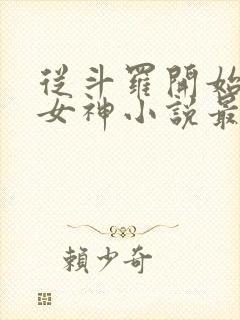 從斗羅開始
女神小說最
賴少奇